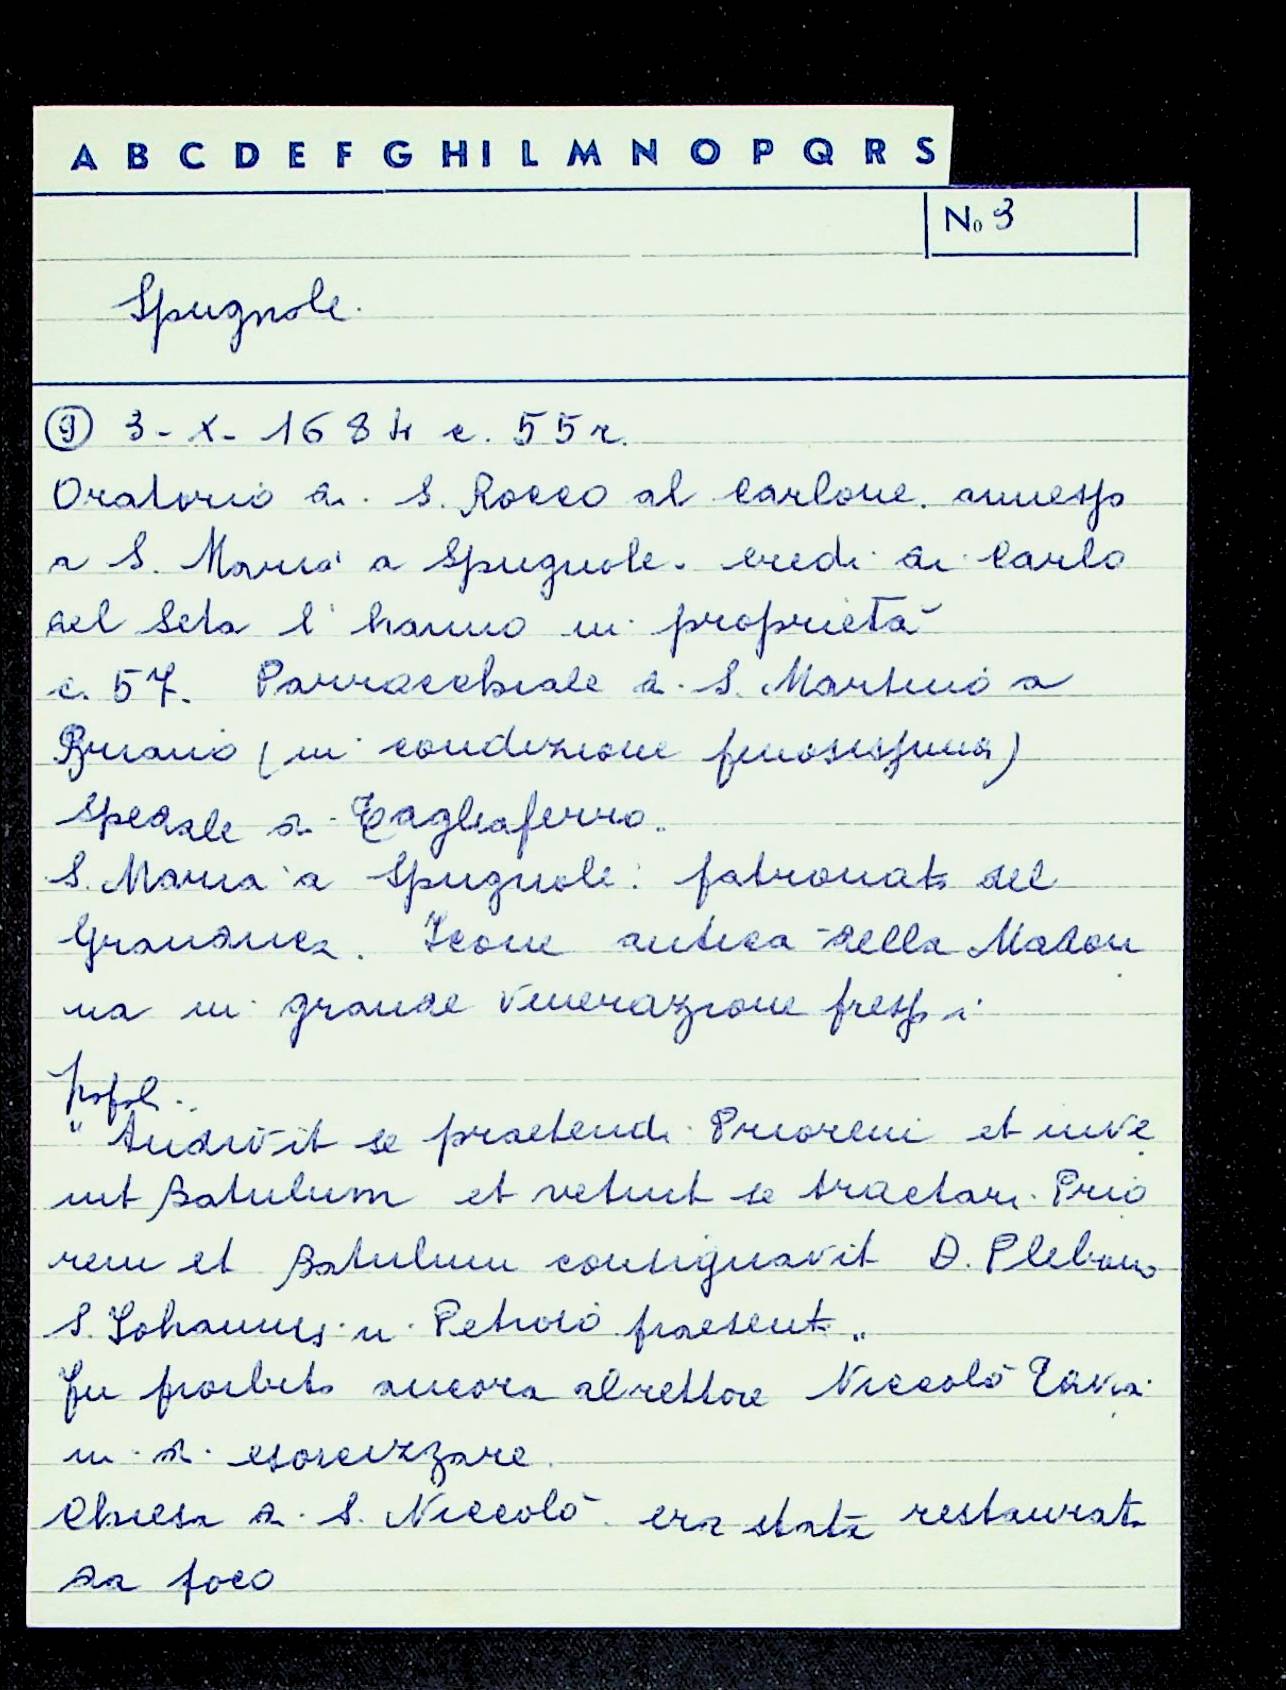 A B C D E F G H I L M N O P Q R S
No 3
Spugnole.
9 3-X-1684 c. 55r.
Oratorio di S. Rocco al Carlone. annesso
a S. Maria a Spugnole. eredi di Carlo
del Seta l'hanno in proprietà
c. 57. Parrocchiale di S. Martino a
(in condizione penosissima)
Spedale di Tagliaferro.
S. Maria a Spugnole: patronato del
Granduca. Icone antica della Madon
na in grande venerazione presso i
popol.
"Audivit se praetendi Priorem et inve
nit Batulum et vetuit se tractari Prio
rem et Batulum consignavit D. Plebano
S. Iohannis in Petroio praesent."
Fu proibito ancora al rettore Niccolò Tavia
ni di esorcizzare.
Chiesa di S. Niccolò era stata restaurata
da poco